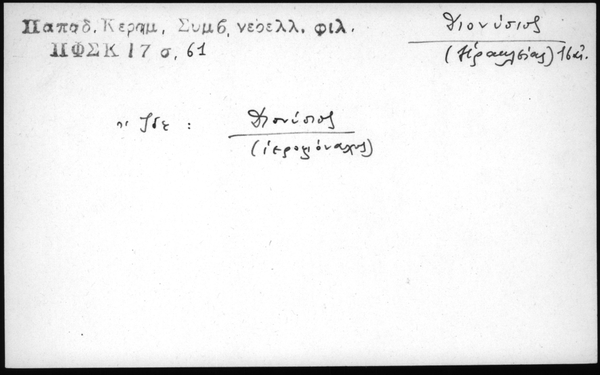 Παπαδ. Κεραμ, Συμβ, νεοελλ. φιλ.
ΠΦΣΚ 17 σ, 61
Διονύσιος
(Ἡρακλείας) 16 αἰ.
Ἴδε : Διονύσιος
(ἱερομόναχος)